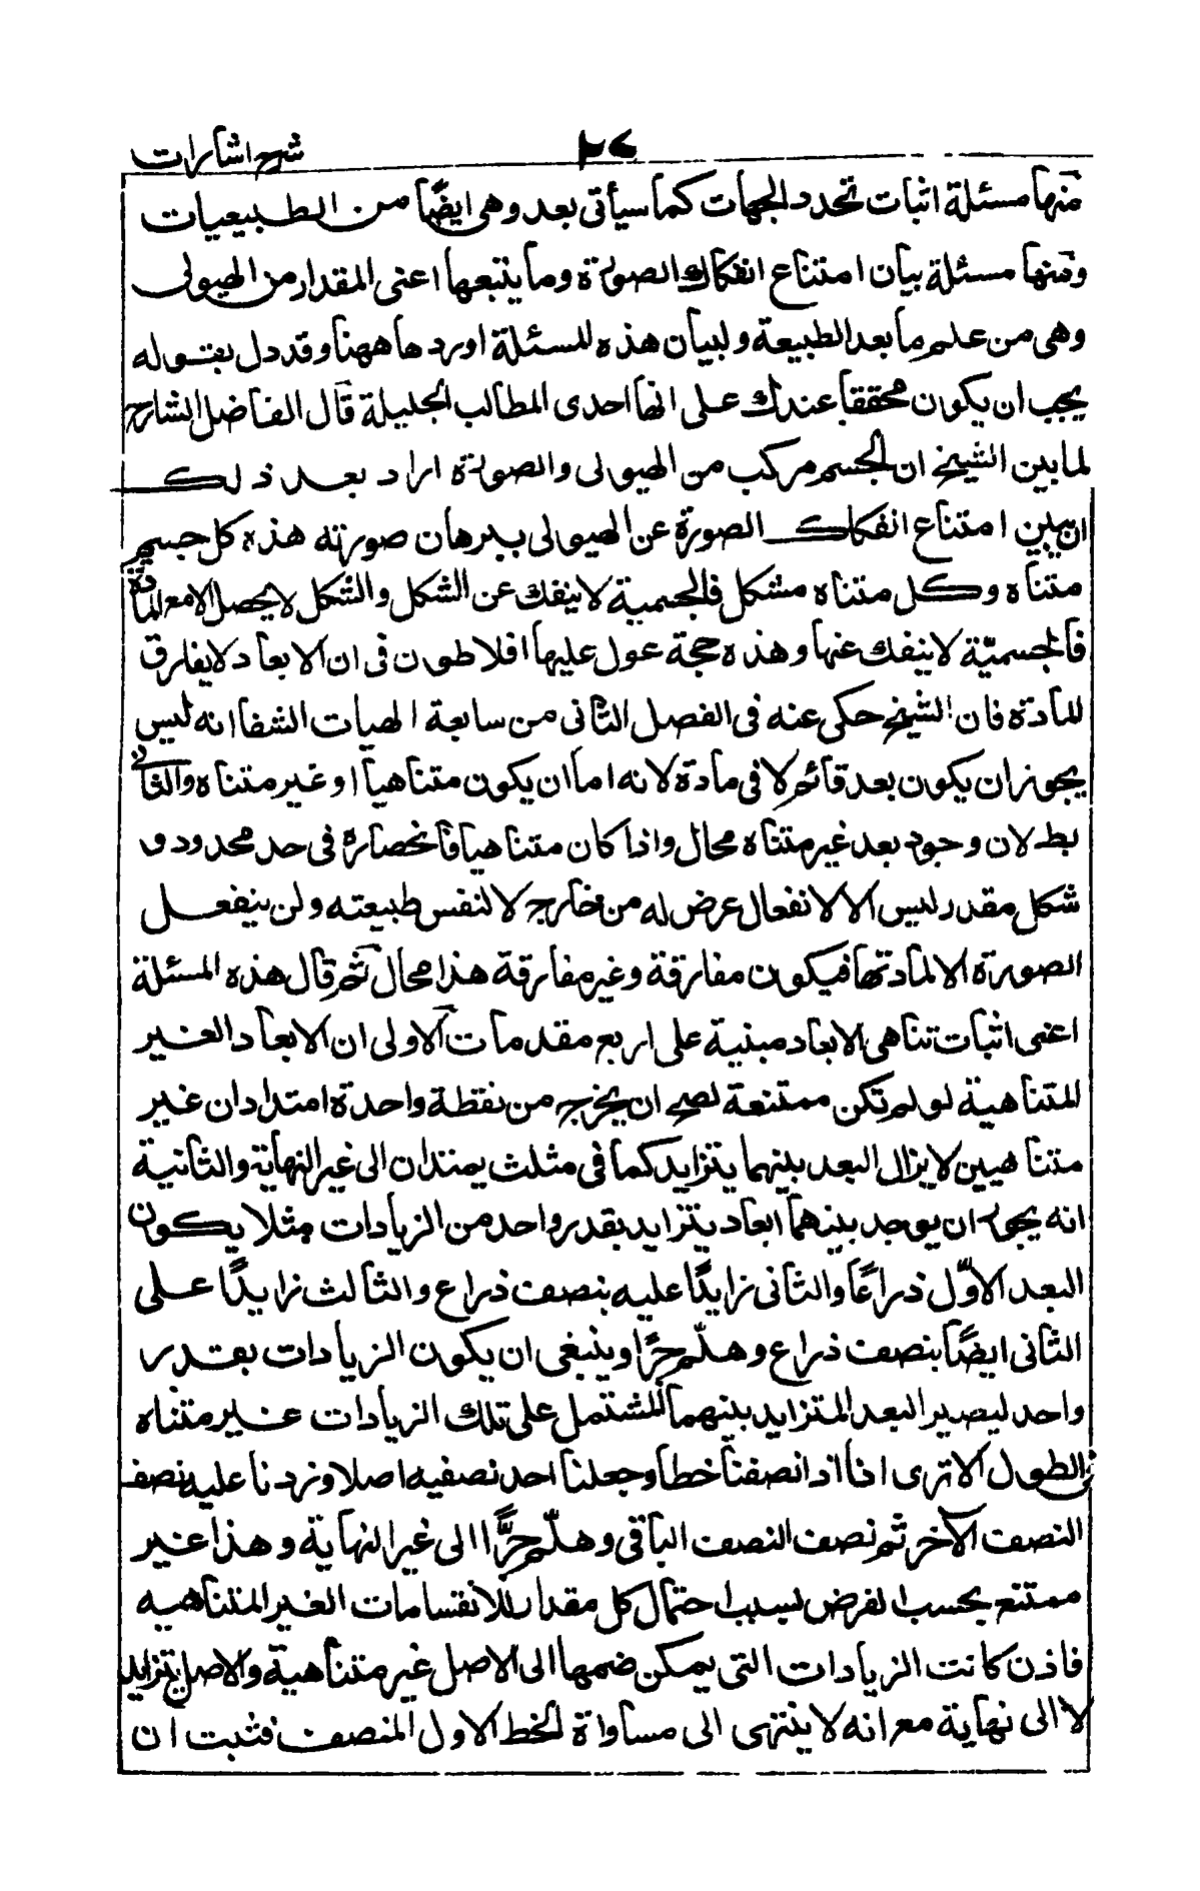 شرح اشارات
منها مسئلة اثبات تحدد الجهات كما سيأتى بعد وهى ايضًا من الطبيعيات
ومنها مسئلة بيان امتناع انفكاك الصورة وما يتبعها اعنى المقدار من الهيولى
وهى من علم ما بعد الطبيعة ولبيان هذه المسئلة اوردها ههنا وقد دل بقوله
يجب ان يكون محققا عندك على انها احدى المطالب الجليلة قال الفاضل الشارح
لما بين الشيخ ان الجسم مركب من الهيولى والصورة اراد بعد ذلك
ان يبين امتناع انفكاك الصورة عن الهيولى ببرهان صورته هذه كل جسم
متناه وكل متناه مشكل فالجسمية لا ينفك عن الشكل والشكل لا يحصل الا مع المادة
فالجسميّة لا ينفك عنها وهذه حجة عول عليها افلاطون فى ان الابعاد لا يفارق
المادة فان الشيخ حكى عنه فى الفصل الثانى من سابعة الهيات الشفا انه ليس
يجوز ان يكون بعد قائم لا فى مادة لانه اما ان يكون متناهيا او غير متناه والثانى
بط لان وجود بعد غير متناه محال واذا كان متناهيا فانحصاره فى حد محدود و
شكل مقدر ليس الا لانفعال عرض له من خارج لا لنفس طبيعته ولن ينفعل
الصورة الا لمادتها فيكون مفارقة وغير مفارقة هذا محال ثم قال هذه المسئلة
اعنى اثبات تناهى الابعاد مبنية على اربع مقدمات الاولى ان الابعاد الغير
المتناهية لو لم تكن ممتنعة لصح ان يخرج من نقطة واحدة امتدادان غير
متناهيين لا يزال البعد بينهما يتزايد كما فى مثلث يمتدان الى غير النهاية والثانية
انه يجوز ان يوجد بينهما ابعاد يتزايد بقدر واحد من الزيادات مثلا يكون
البعد الاوّل ذراعًا والثانى زايدًا عليه بنصف ذراع والثالث زايدًا على
الثانى ايضًا بنصف ذراع وهلّم جرًّا وينبغى ان يكون الزيادات بقدر
واحد ليصير البعد المتزايد بينهما المشتمل على تلك الزيادات غير متناه
فى الطول الا ترى انا اذا نصفنا خطا وجعلنا احد نصفيه اصلا وزدنا عليه نصف
النصف الآخر ثم نصف النصف الباقى وهلّم جرًّا الى غير النهاية وهذا غير
ممتنع بحسب الفرض بسبب احتمال كل مقدار للانقسامات الغير المتناهيه
فاذن كانت الزيادات التى يمكن ضمها الى الاصل غير متناهية والاصل يتزايد
لا الى نهاية مع انه لا ينتهى الى مساواة الخط الاول المنصف فثبت ان